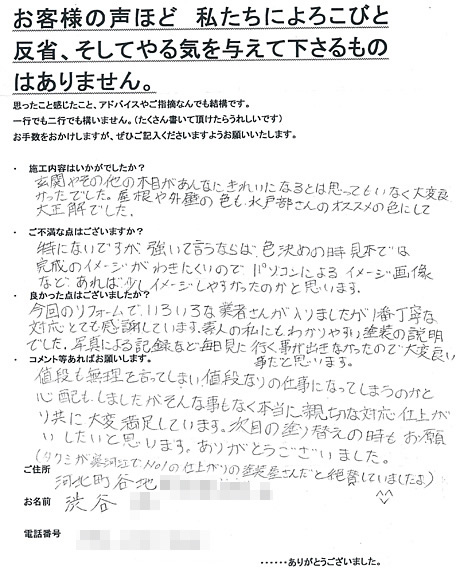 お客様の声ほど 私たちによろこびと
反省、そしてやる気を与えて下さるもの
はありません。
思ったこと感じたこと、アドバイスやご指摘なんでも結構です。
一行でも二行でも構いません。(たくさん書いて頂けたらうれしいです)
お手数をおかけしますが、ぜひご記入くださいますようお願いいたします。
・ 施工内容はいかがでしたか?
玄関やその他の木目があんなにきれいになるとは思ってもいなく大変良
かったでした。屋根や外壁の色も水戸部さんのオススメの色にして
大正解でした。
・ ご不満な点はございますか?
特にないですが、強いて言うならば、色決めの時見本では
完成のイメージがわきにくいので、パソコンによるイメージ画像
など、あれば少しイメージしやすかったのかと思います。
・ 良かった点はございましたか?
今回のリフォームで、いろいろな業者さんが入りましたが1番丁寧な
対応とても感謝しています。素人の私にもわかりやすい塗装の説明
でした。写真による記録など毎日見に行く事が出きなかったので大変良い
事だと思います。
・ コメント等あればお願いします。
値段も無理を言ってしまい値段なりの仕事になってしまうのかと
心配もしましたがそんな事もなく本当に親切な対応、仕上が
り共に大変満足しています。次回の塗り替えの時もお願
いしたいと思います。ありがとうございました。
(タクミが寒河江でNo1の仕上がりの塗装屋さんだと絶賛していましたよ)
ご住所
河北町谷地
お名前
渋谷
電話番号
‥‥‥ありがとうございました。